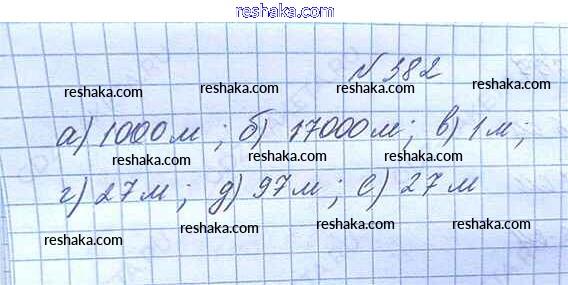 reshaka.com
№ 382
reshaka.com reshaka.com reshaka.com
а) 1000 м ; б) 17000 м ; в) 1 м ;
reshaka.com reshaka.com reshaka.com
г) 27 м ; д) 97 м ; е) 27 м
reshaka.com reshaka.com reshaka.com
reshaka.com